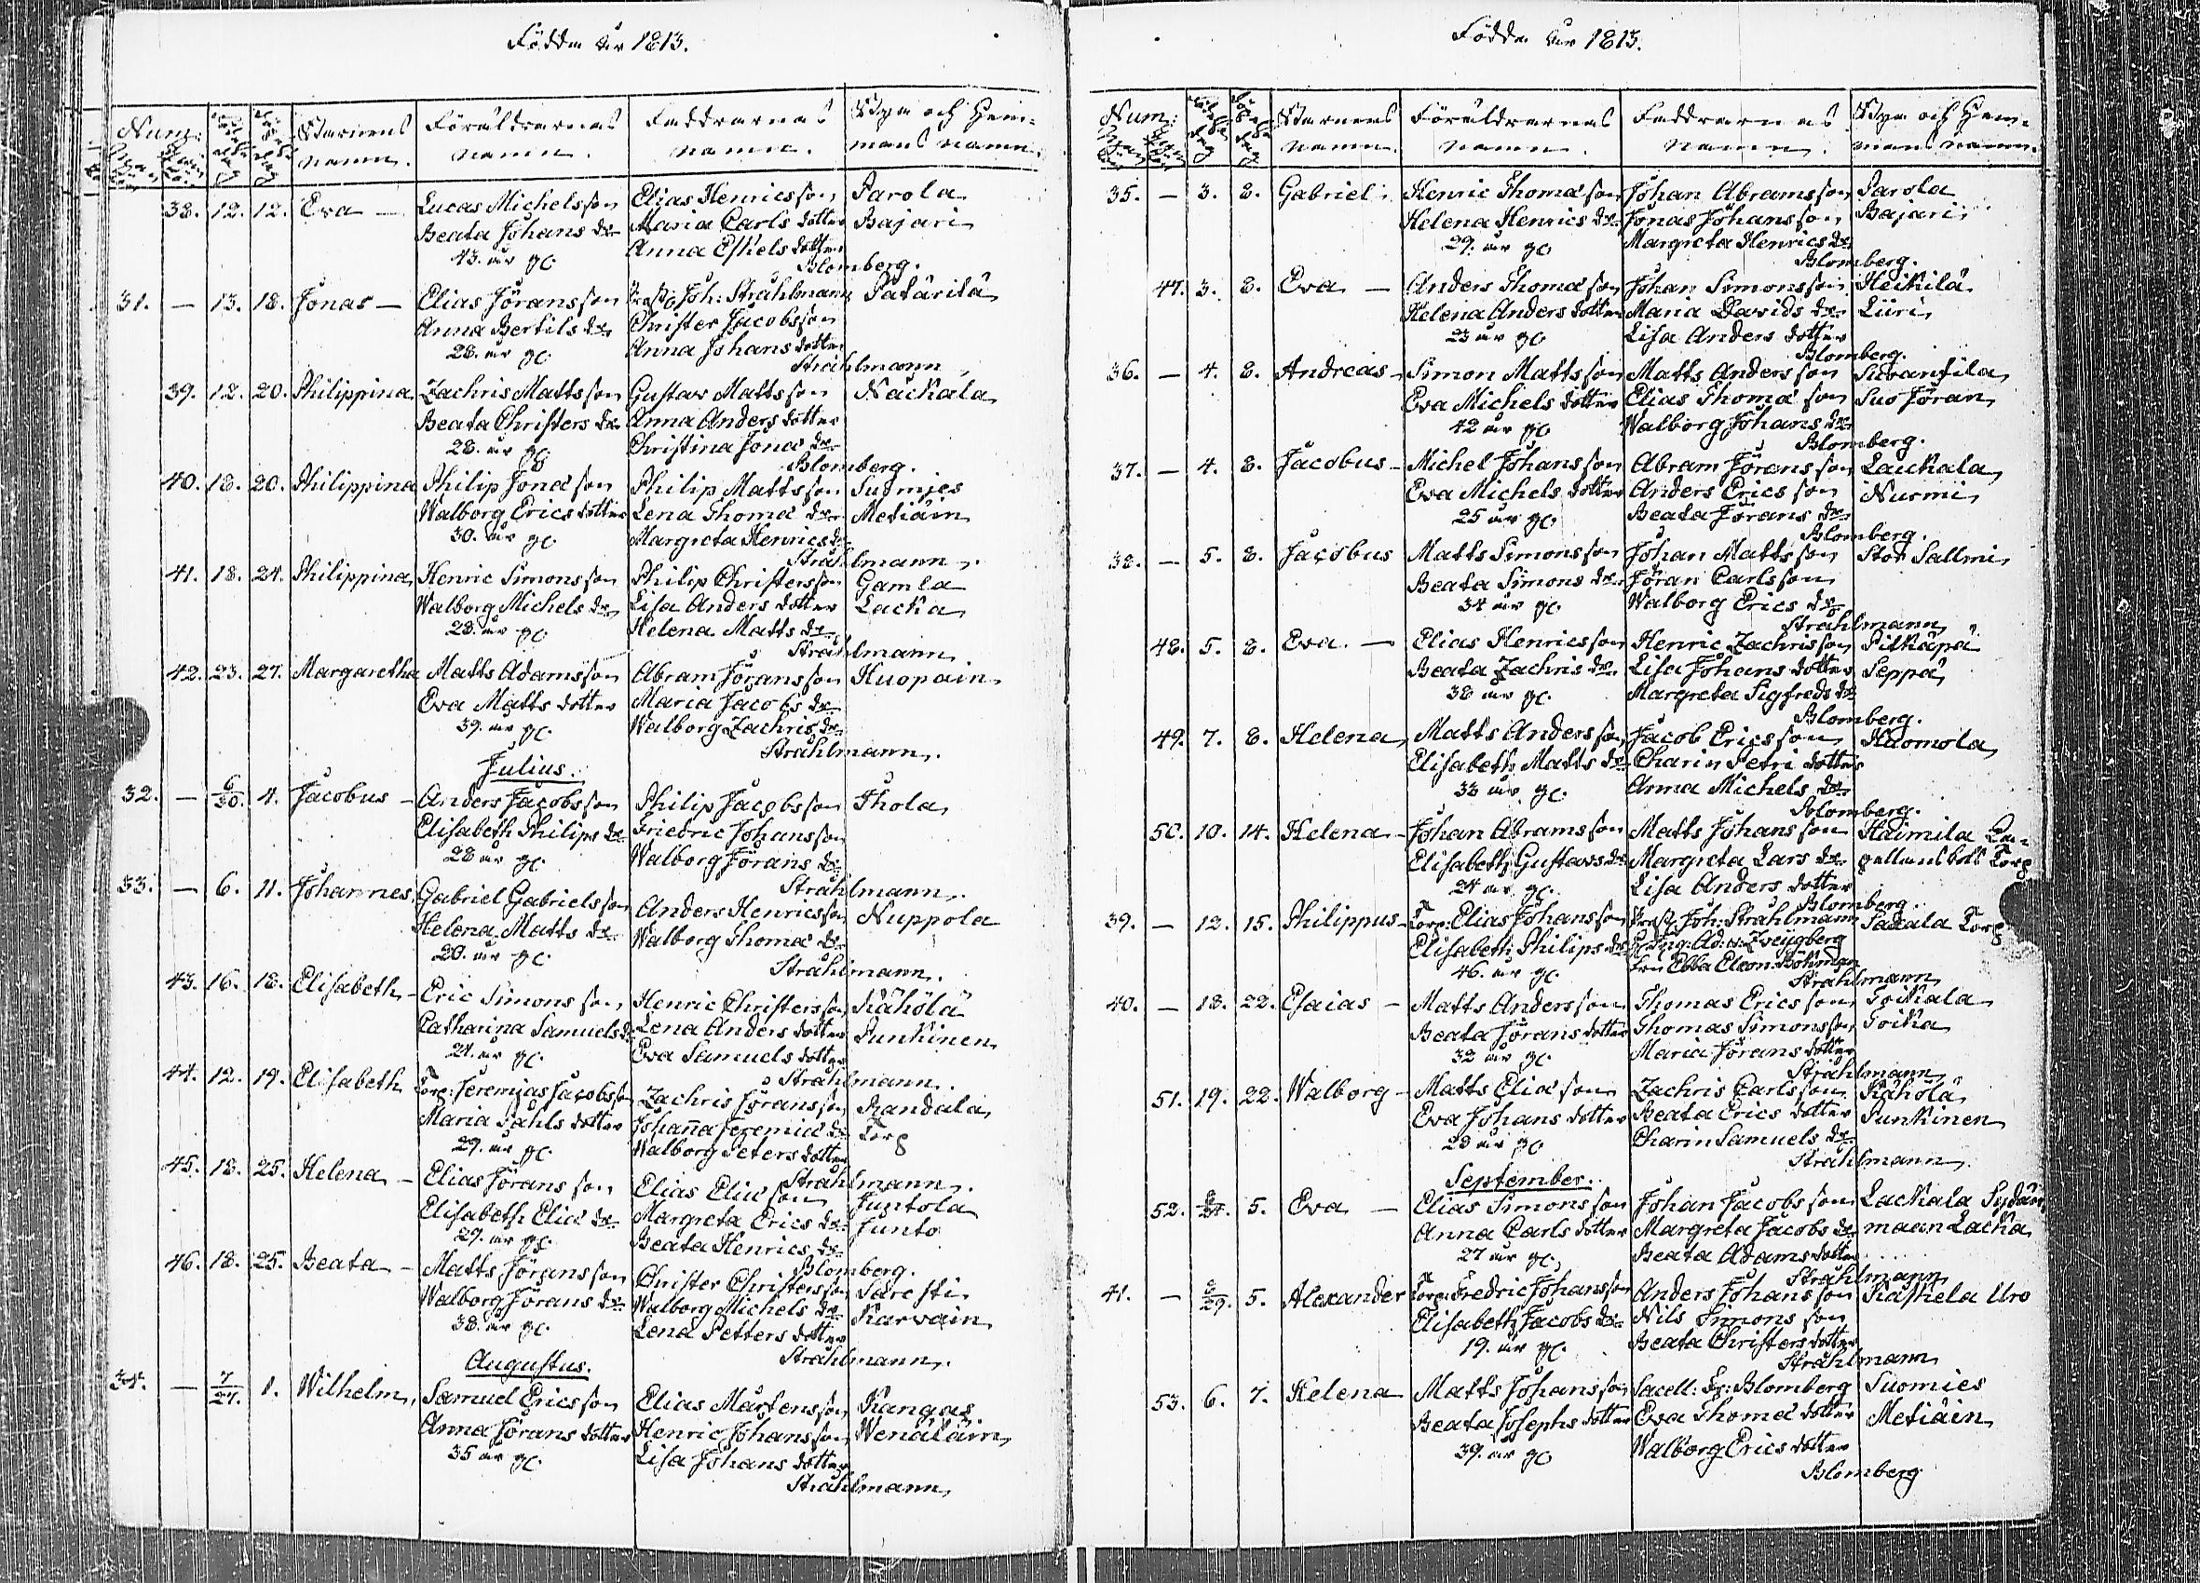 Födde år 1813.
Num:
Barnens namn.
Föräldrarnas namn.
Faddrarnas namn.
Bya och Hemmans namn.
38. 12. 12. Eva — Lucas Michelsson Elias Henricsson Parola
Beata Johans dr Maria Carls dotter Bajari
43. år gl. Anna Eskels dotter
Blomberg.
31. — 13. 18. Jonas — Elias Jöransson Prost: Joh: Strahlmann Patärilä
Anna Bertils dr Christer Jacobsson
28. år gl. Anna Johans dotter
Strahlmann
39. 18. 20. Philippina Zachris Mattsson Gustav Mattsson Nackala
Beata Christers dr Anna Anders dotter
28. år gl. Christina Jonæ dr
Blomberg.
40. 18. 20. Philippina Philip Jonæson Philip Mattsson Suomies
Walborg Erics dotter Lena Thomæ dr Metiäin
30. år gl. Margreta Henrics dr
Strahlmann.
41. 18. 24. Philippina Henric Simonsson Philip Christersson Gamla
Walborg Michels dr Lisa Anders dotter Lacka
28. år gl. Helena Matts dr
Strahlmann.
42. 23. 27. Margaretha Matts Adamsson Abram Jöransson Kuopain
Eva Matts dotter Maria Jacobs dr
39. år gl. Walborg Zachris dr
Strahlmann.
Julius.
32. — 6/30. 4. Jacobus — Anders Jacobsson Philip Jacobsson Ihola
Elisabeth Philips dr Friedric Johansson
28 år gl. Walborg Jörans dr
Strahlmann.
33. — 6. 11. Johannes Gabriel Gabrielsson Anders Henricsson Nuppola
Helena Matts dr Walborg Thomæ dr
20. år gl.
Strahlmann.
43. 16. 18. Elisabeth — Eric Simonsson Henric Christersson Kähölä
Catharina Samuels dr Lena Anders dotter Punkinen
24. år gl. Eva Samuels dotter
Strahlmann.
44. 12. 19. Elisabeth Torp: Jeremias Jacobsson Zachris Jöransson Randala
Maria Pahls dotter Johanna Jeremiæ dr Torp
29. år gl. Walborg Peters dotter
Strahlmann.
45. 18. 25. Helena — Elias Jöransson Elias Eliæson Juntola
Elisabeth Eliæ dr Margreta Erics dr Junto
29. år gl. Beata Henrics dr
Blomberg.
46. 18. 25. Beata — Matts Jöransson Christer Christersson Säresti
Walborg Jörans dr Walborg Michels dr Karvain
38. år gl. Lena Petters dotter
Strahlmann.
Augustus.
34. — 7/27. 1. Wilhelm, Samuel Ericsson Elias Mårtensson Kangas
Anna Jörans dotter Henric Johansson Wenäläin
35 år gl. Lisa Johans dotter
Strahlmann
Födde år 1813.
Num:
Barnens namn.
Föräldrarnas namn.
Faddrarnas namn.
Bya och Hemmans namn.
35. — 3. 8. Gabriel. Henric Thomæson Johan Abramsson Parola
Helena Henrics dr Jonas Johansson Bajari
29. år gl. Margreta Henrics dr
Blomberg.
47. 3. 8. Eva — Anders Thomæson Johan Simonsson Heikilä
Helena Anders dotter Maria Davids dr Liiri
23 år gl. Lisa Anders dotter
Blomberg.
36. — 4. 8. Andreas — Simon Mattsson Matts Andersson Suvantila
Eva Michels dotter Elias Thomæson Suo Jöran
42 år gl. Walborg Johans dr
Blomberg.
37. — 4. 8. Jacobus — Michel Johansson Abram Jöransson Laukala
Eva Michels dotter Anders Ericsson Nurmi
25 år gl. Beata Jörans dr
Blomberg.
38. — 5. 8. Jacobus Matts Simonsson Johan Mattsson Stor Sallmi
Beata Simons dr Jöran Carlsson
34 år gl. Walborg Erics dr
Strahlmann
48. 5. 8. Eva. — Elias Henricsson Henric Zachrisson Pitkäpä
Beata Zachris dr Lisa Johans dotter Seppä
38 år gl. Margreta Sigfreds dr
Blomberg.
49. 7. 8. Helena Matts Andersson Jacob Ericsson Kaomola
Elisabeth Matts dr Charin Petri dotter
33 år gl. Anna Michels dr
Blomberg.
50. 10. 14. Helena — Johan Abramsson Matts Johansson Haimila Ca-
Elisabeth Gustavs dr Margreta Lars dr pellansbolt Torp
24 år gl. Lisa Anders dotter
Blomberg.
39. — 12. 15. Philippus — Torp: Elias Johansson Prost: Joh: Strahlmann Sakala Torp
Elisabeth Philips dr Ing: Ad: v: Zveygberg
46. år gl. Fru Ebba Eleon: Böhman
Strahlmann
40. — 18. 22. Esaias — Matts Andersson Thomas Ericsson Toikala
Beata Jörans dotter Thomas Simonsson Toika
32 år gl. Maria Jörans dotter
Strahlmann
51. 19. 22. Walborg — Matts Eliæson Zachris Carlsson Kähölä
Eva Johans dotter Beata Erics dotter Punkinen
20 år gl. Charin Samuels dr
Strahlmann
September.
52. 8/27. 5. Eva — Elias Simonsson Johan Jacobsson Lackala Sydän
Anna Carls dotter Margreta Jacobs dr maan Lacka
27 år gl. Beata Adams dotter
Strahlmann
41. — 8/29. 5. Alexander Torp: Fredric Johansson Anders Johansson Kaskela Uro
Elisabeth Jacobs dr Nils Simonsson
19. år gl. Beata Christers dotter
Strahlmann
53. 6. 7. Helena Matts Johansson Sacell: Gr: Blomberg Suomies
Beata Josephs dotter Eva Thomæ dotter Metiäin
39. år gl. Walborg Erics dotter
Blomberg